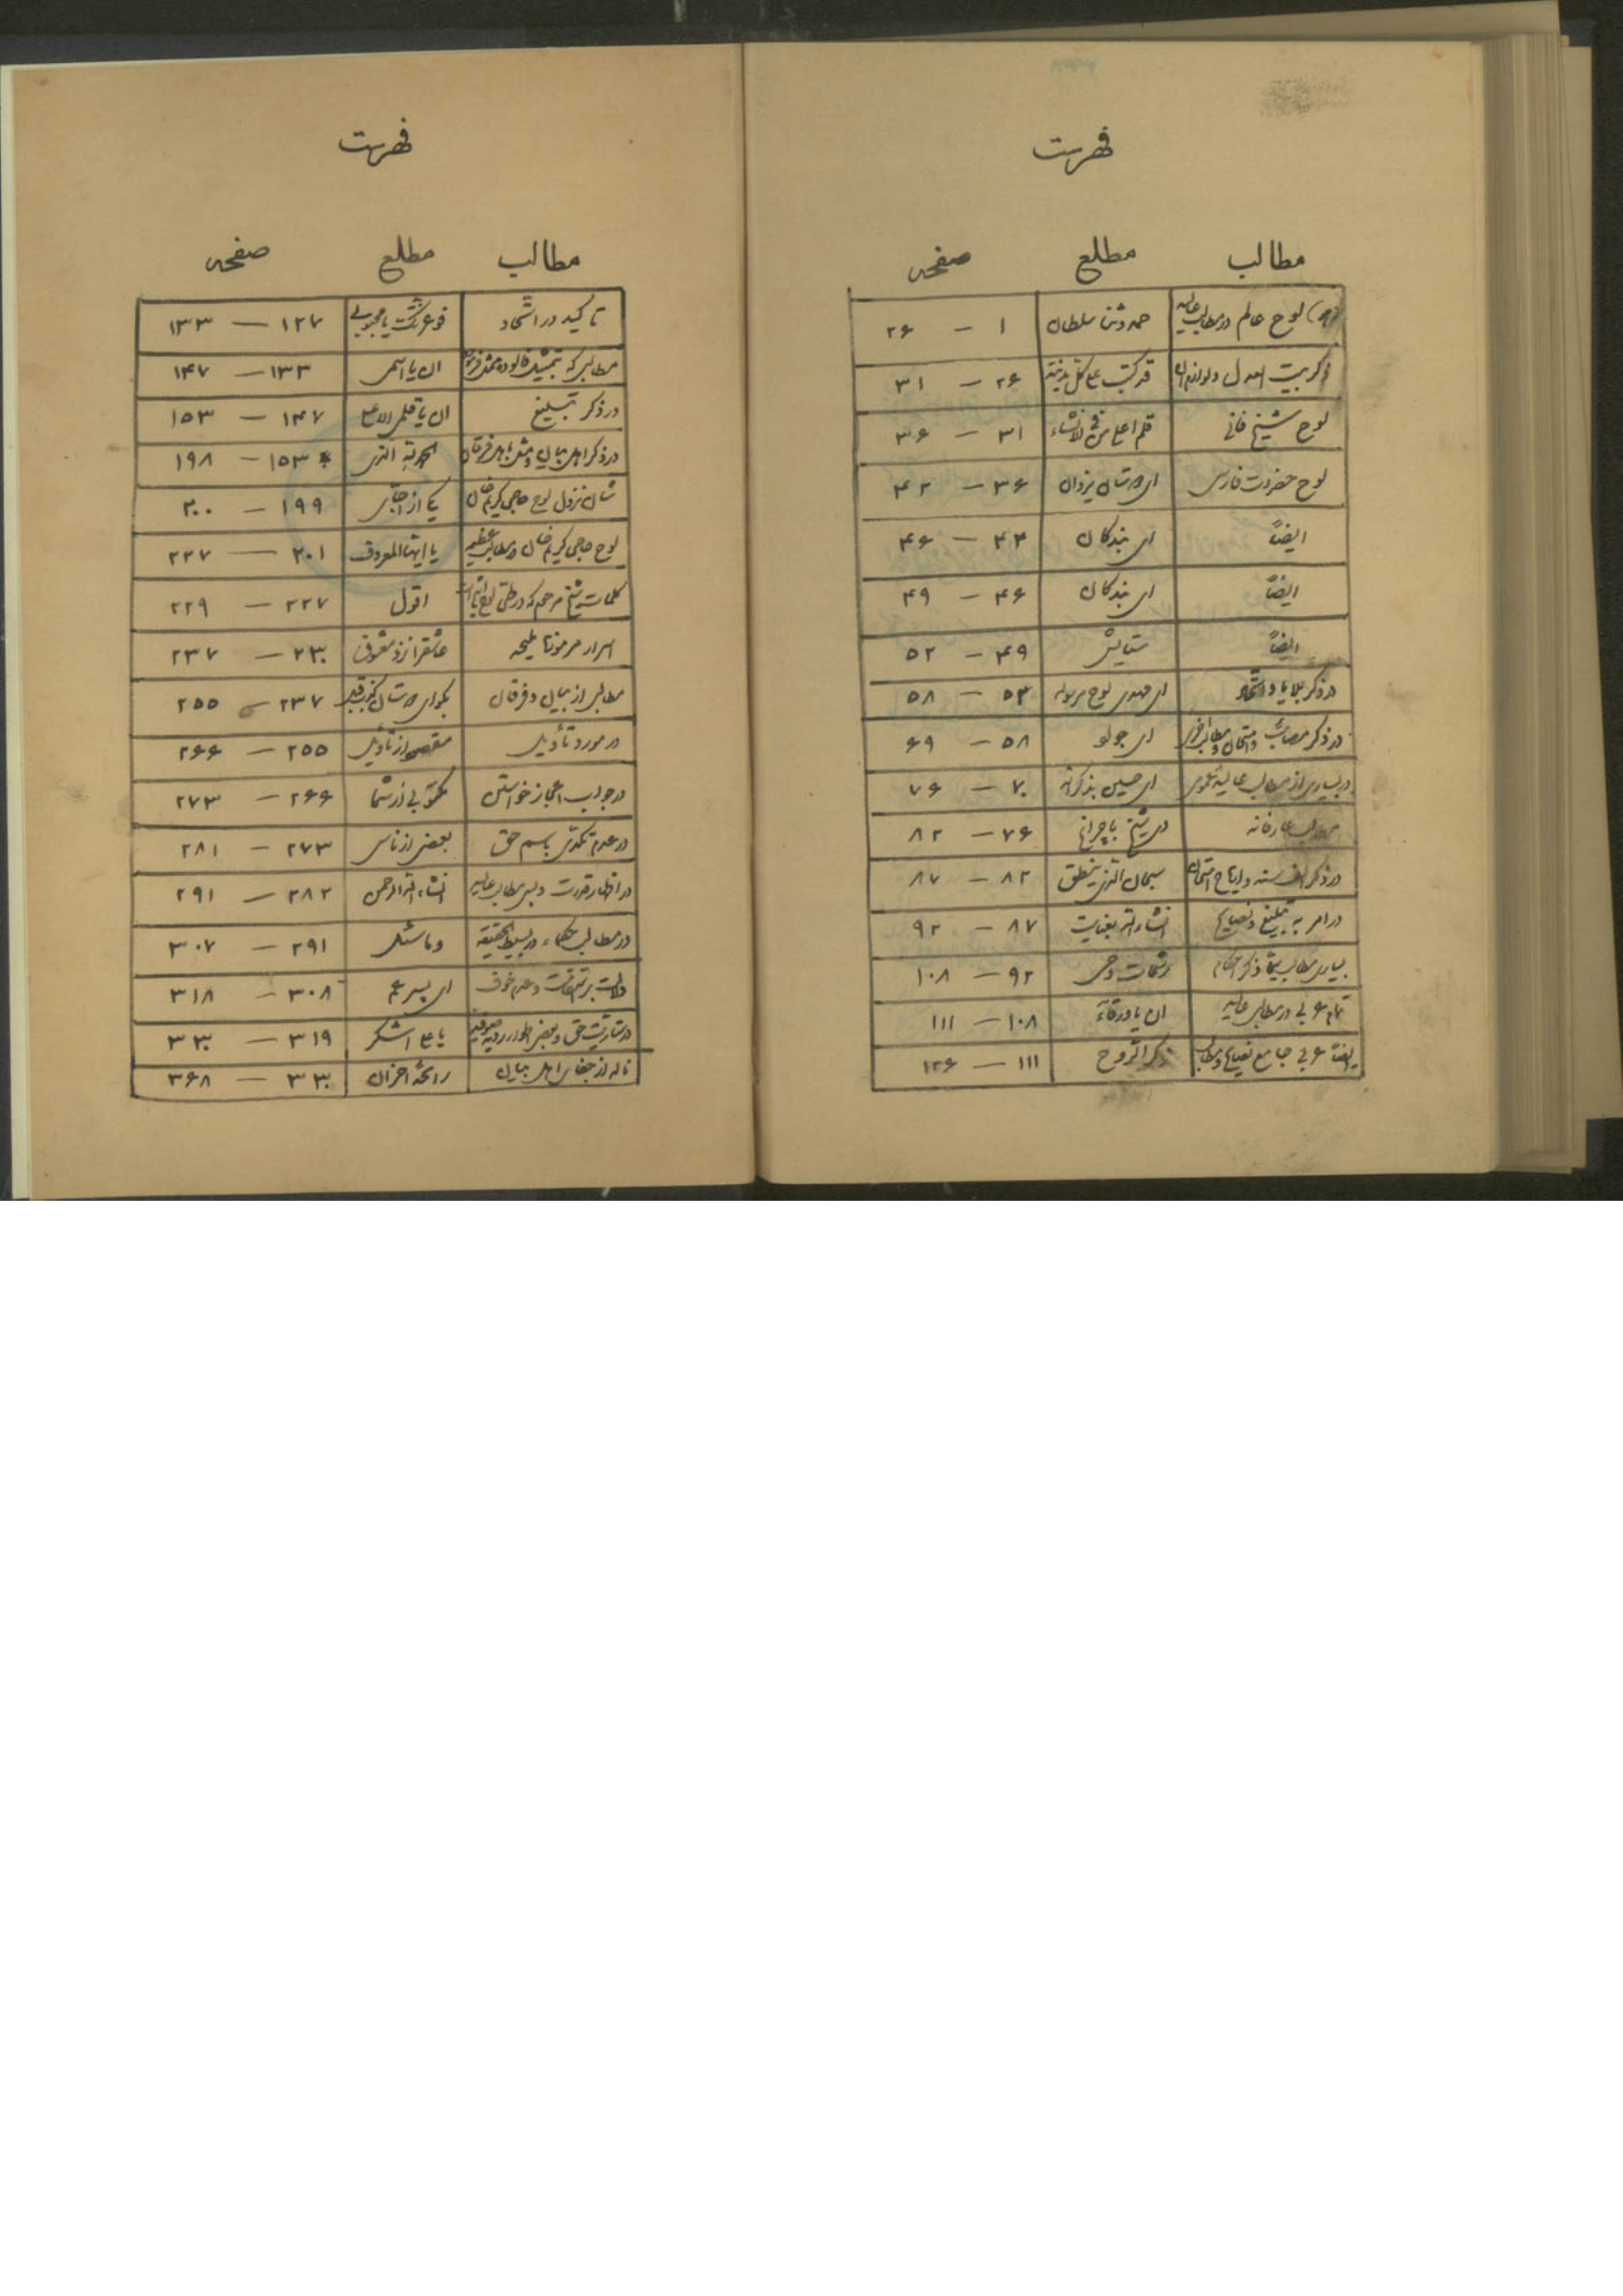 فهرست
مطالب مطلع صفحه
لوح عالم در مطالب عالیه حمد و ثنا سلطان ۱ — ۲۶
ذکر بیت العدل و لوازم آن قد کتب علی کل مدینة ۲۶ — ۳۱
لوح شیخ فانی قلم اعلی ۳۱ — ۳۶
لوح حضرت فارسی ای دوستان یزدان ۳۶ — ۴۲
ایضاً ای بندگان ۴۳ — ۴۶
ایضاً ای بندگان ۴۶ — ۴۹
ایضاً ستایش ۴۹ — ۵۲
در ذکر بلایا و اتحاد ای مهدی لوح مرسوله ۵۳ — ۵۸
در ذکر مصائب و امتحان و مطالب اخری ای جواد ۵۸ — ۶۹
در بسیاری از مطالب عالیه ای حسین بذکرالله ۷۰ — ۷۶
عارفانه ۷۶ — ۸۲
در ذکر سبحان الذی ینطق ۸۲ — ۸۷
در امر به تبلیغ و نصایح انشاءالله بعنایت ۸۷ — ۹۲
بسیاری مطالب ذکر احکام رشحات وحی ۹۲ — ۱۰۸
تمام عربی در مطالب عالیه ان یا ورقاء ۱۰۸ — ۱۱۱
ایضاً عربی جامع نصایح و مطالب ذکر الروح ۱۱۱ — ۱۲۶
فهرست
مطالب مطلع صفحه
تاکید در اتحاد فوعزتک یا محبوبی ۱۲۷ — ۱۳۳
مطالبی که ان یا اسمی ۱۳۳ — ۱۴۷
در ذکر تبلیغ ان یا قلمی الاعلی ۱۴۷ — ۱۵۳
در ذکر اهل بیان و مثل اهل فرقان الحمدلله الذی ۱۵۳ — ۱۹۸
شان نزول لوح حاجی کریم خان یکی از احبای ۱۹۹ — ۲۰۰
لوح حاجی کریم خان و مطالب عظیمه یا ایها المعروف ۲۰۱ — ۲۲۷
کلمات شیخ مرحوم که در طی لوح اقول ۲۲۷ — ۲۲۹
اسرار مرموزات ملیحه عاشقی از معشوق ۲۳۰ — ۲۳۷
مطالبی از بیان و فرقان بگو ای دوستان ۲۳۷ — ۲۵۵
در مورد تأویل مقصود از تأویل ۲۵۵ — ۲۶۶
در جواب اعجاز خواستن مکتوبی از شما ۲۶۶ — ۲۷۳
در عدم تکدی باسم حق بعضی از ناس ۲۷۳ — ۲۸۱
در اظهار قدرت و بسی مطالب عالیه انشاءالله الرحمن ۲۸۲ — ۲۹۱
در مطالب حکماء در بسیط الحقیقه و ما سئل ۲۹۱ — ۳۰۷
دلالت بر استقامت و عدم خوف ای پسر عم ۳۰۸ — ۳۱۸
در ستاریت حق و بعضی اطوار ردیه صوفیه یا علی اشکر ۳۱۹ — ۳۳۰
ناله از جفای اهل بیان رائحه احزان ۳۳۰ — ۳۶۸